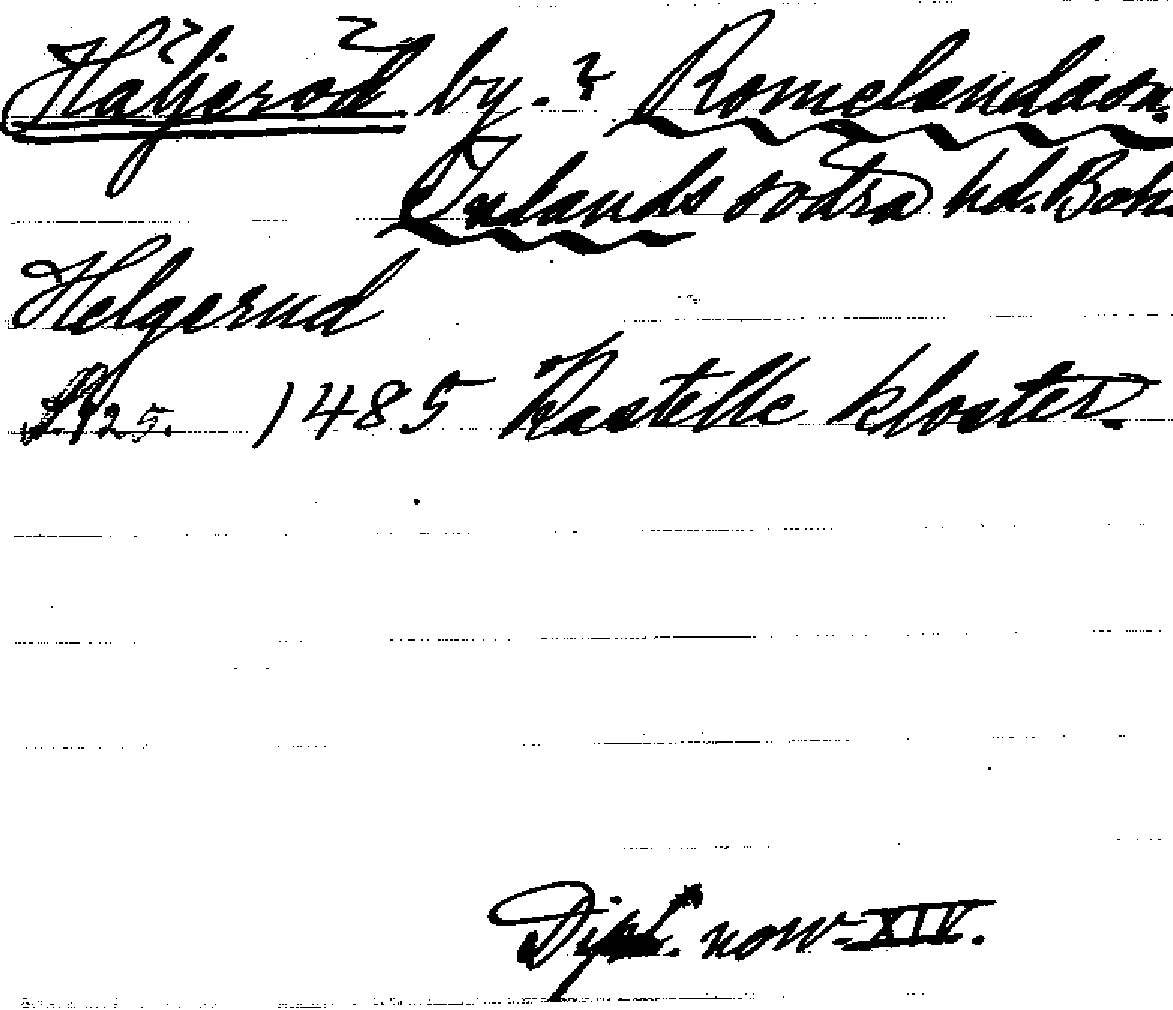 Häljeröd by.? Romelanda sn.
Inlands södra hd. Boh
Helgerud
s. 125. 1485 Kastelle kloster.
Dipl. norv. XIV.